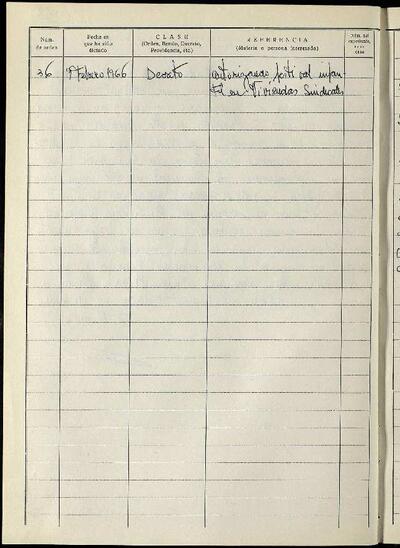 Núm.
de orden
Fecha en
que ha sido
dictado
CLASE
(Orden, Bando, Decreto,
Providencia, etc.)
REFERENCIA
(Materia o persona interesada)
Núm. del
expediente,
en su
caso
36
Febrero 1966
Decreto
autorizando festival infan-
til en Viviendas Sindicales